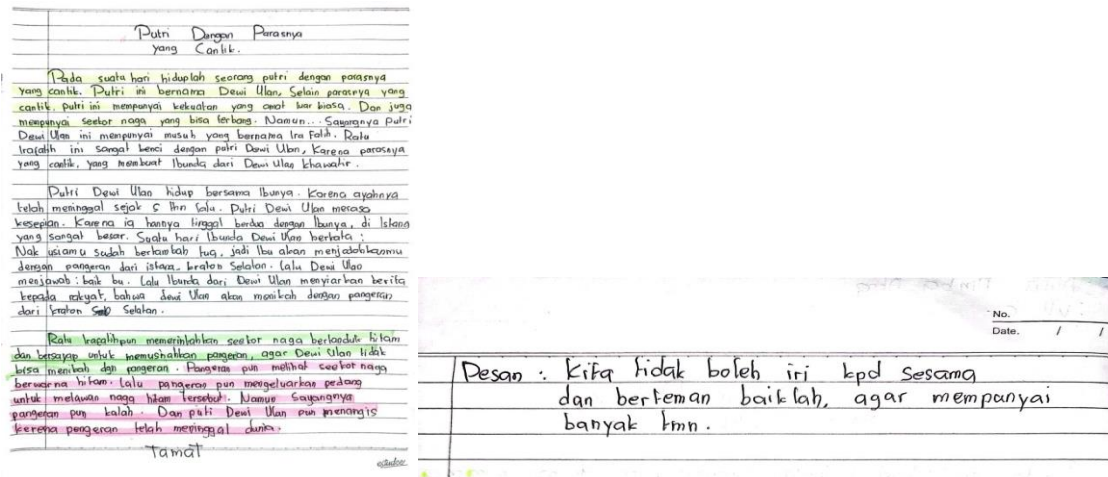 Putri Dengan Parasnya
yang Cantik.
Pada suatu hari hiduplah seorang putri dengan parasnya
yang cantik. Putri ini bernama Dewi Ulan, Selain parasnya yang
cantik, putri ini mempunyai kekuatan yang amat luar biasa. Dan juga
mempunyai seekor naga yang bisa terbang. Namun... Sayangnya Putri
Dewi Ulan ini mempunyai musuh yang bernama Ira Falih. Ratu
Irafalih ini sangat benci dengan putri Dewi Ulan, Karena parasnya
yang cantik, yang membuat Ibunda dari Dewi Ulan khawatir.
Putri Dewi Ulan hidup bersama Ibunya. Karena ayahnya
telah meninggal sejak 5 thn lalu. Putri Dewi Ulan merasa
kesepian. Karena ia hannya tinggal berdua dengan Ibunya, di Istana
yang sangat besar. Suatu hari Ibunda Dewi Ulan berkata :
Nak usiamu sudah bertambah tua, jadi Ibu akan menjodohkanmu
dengan pangeran dari istana kraton Selatan. lalu Dewi Ulan
menjawab : baik bu. Lalu Ibunda dari Dewi Ulan menyiarkan berita
kepada rakyat, bahwa dewi Ulan akan menikah dengan pangeran
dari kraton Selatan.
Ratu Irafalihpun memerintahkan seekor naga bertanduk hitam
dan bersayap untuk memusnahkan pangeran, agar Dewi Ulan tidak
bisa menikah dgn pangeran. Pangeran pun melihat seekor naga
berwarna hitam. Lalu pangeran pun mengeluarkan pedang
untuk melawan naga hitam tersebut. Namun Sayangnya
pangeran pun kalah. Dan putri Dewi Ulan pun menangis
kerena pengeran telah meninggal dunia.
Tamat
No.
Date. / /
Pesan : Kita tidak boleh iri kpd sesama
dan berteman baiklah, agar mempunyai
banyak tmn.